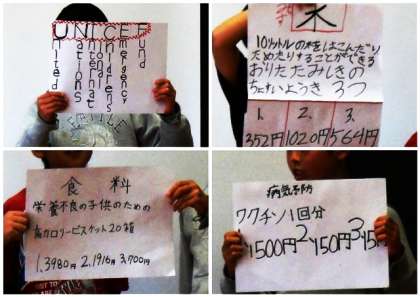 UNICEF
nited
ations
nternat
hildrens
mergency
und
水
10リットルの水をはこんだり
ためたりすることができる
おりたたみしきの
ちょすいようき 3つ
1. 2. 3.
352円 1020円 564円
食 料
栄養不良の子供のための
高カロリービスケット20箱
1.3980円 2.1916円 3.700円
病気予防
ワクチン1回分
1500円 2 150円 3 15円